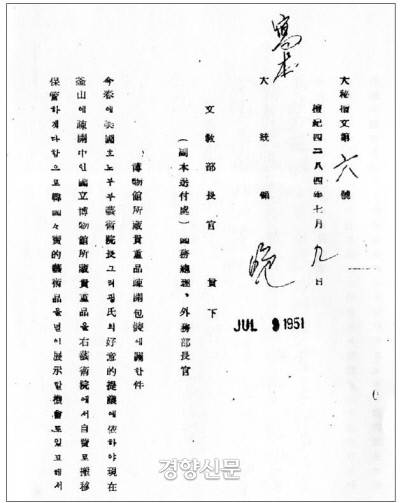 寫本
大秘指文第 六 號
檀紀四二八四年七月 九 日
大統領 晩
文敎部長官 貴下
JUL 9 1951
(副本送付處) 國務總理、外務部長官
博物館所藏貴重品疎開包裝에關한件
美國호노부부藝術院長 氏의好意的提議에依하야現在
釜山에疎開中인國立博物館所藏貴重品을右藝術院에서自費로搬移
保管하게다함으로韓國々寶的藝術品을널이展示할機會도잇고해서
경향신문